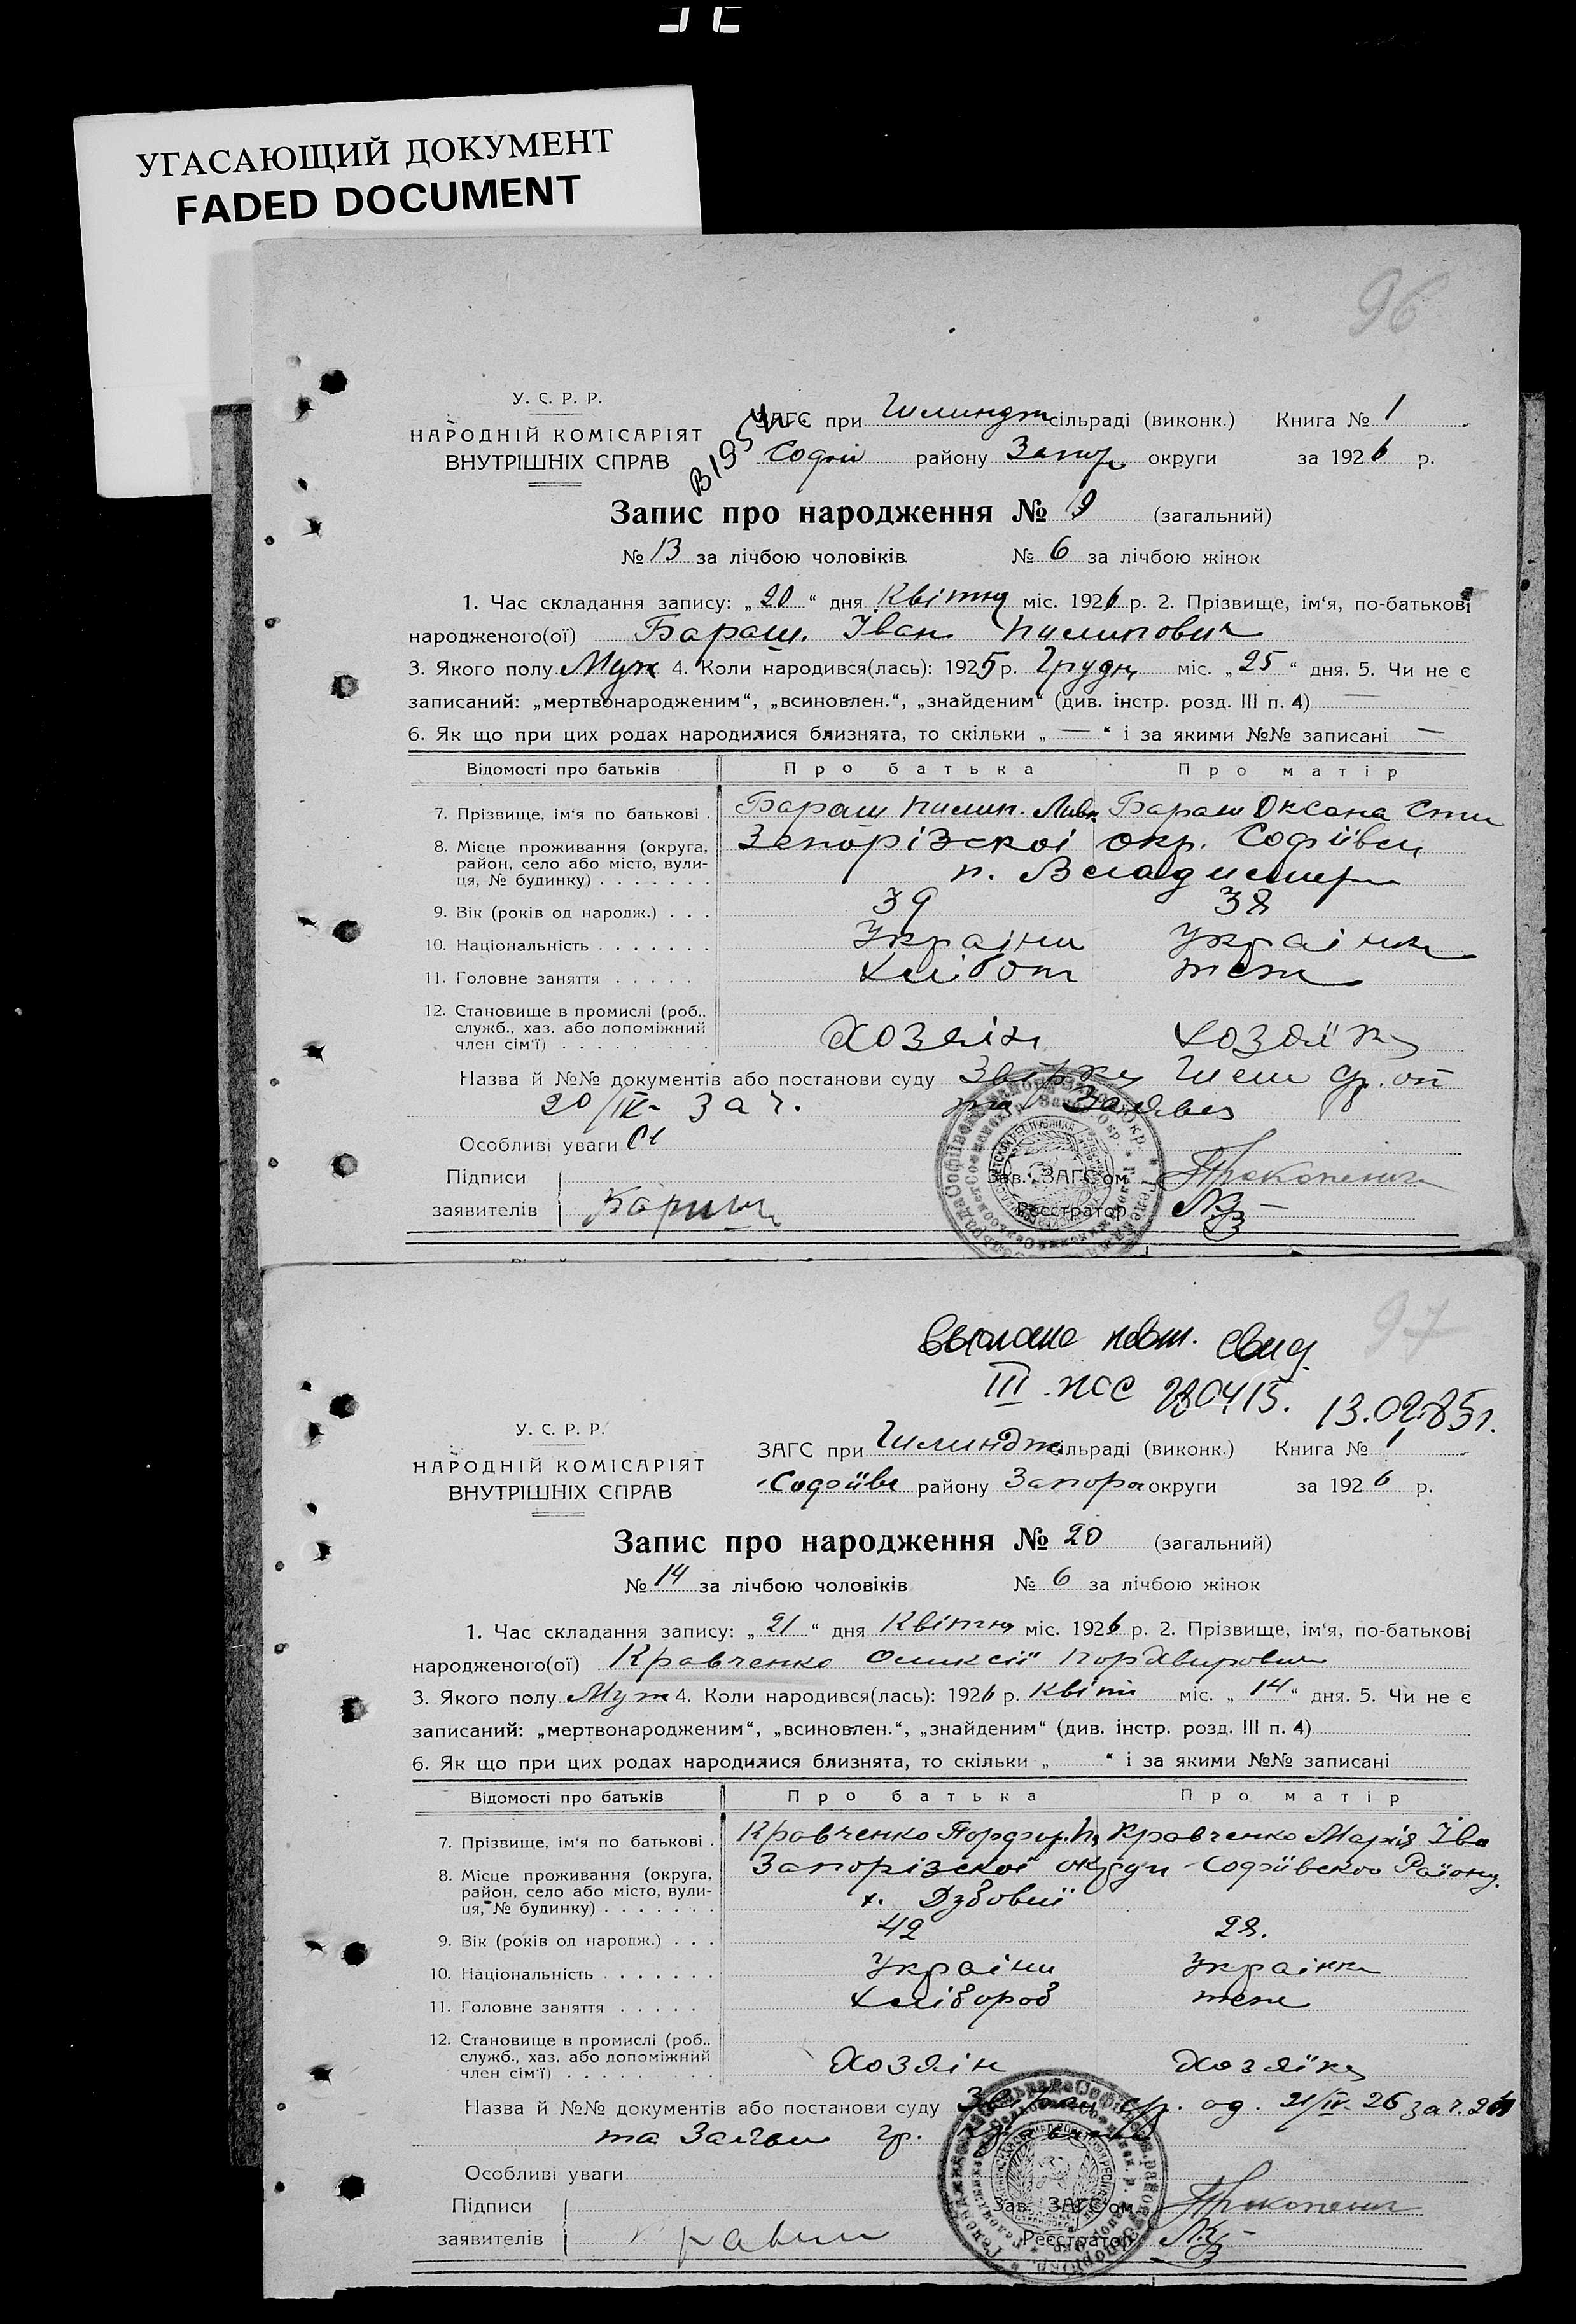 УГАСАЮЩИЙ ДОКУМЕНТ
FADED DOCUMENT
96
У. С. Р. Р.
НАРОДНІЙ КОМІСАРІЯТ
ВНУТРІШНІХ СПРАВ
ЗАГС при сільраді (виконк.) Книга № 1
Софії району Запор округи за 1926 р.
Запис про народження № 19 (загальний)
№ 13 за лічбою чоловіків № 6 за лічбою жінок
1. Час складання запису: „20“ дня Квітня міс. 1926 р. 2. Прізвище, ім‘я, по-батькові
народженого(ої) Бараш Іван Пилипович
3. Якого полу Муж 4. Коли народився(лась): 1925 р. Грудн міс. „25“ дня. 5. Чи не є
записаний: „мертвонародженим“, „всиновлен.“, „знайденим“ (див. інстр. розд. III п. 4) —
6. Як що при цих родах народилися близнята, то скільки „—“ і за якими №№ записані —
Відомості про батьків Про батька Про матір
7. Прізвище, ім‘я по батькові . Бараш Пилип. Бараш Оксана
8. Місце проживання (округа, Запорізскоі окр. Софіївсц
район, село або місто, вули-
ця, № будинку) . . . . . . . п. Владимир
9. Вік (років од народж.) . . . 39 38
10. Національність . . . . . . . Украіни Украінка
11. Головне заняття . . . . . Хлібот теж
12. Становище в промислі (роб..
служб., хаз. або допоміжний
член сім‘ї) . . . . . . . . . Хозяін Хозяїка
Назва й №№ документів або постанови суду
20/IV- за ч. та Заяви
Особливі уваги
Підписи Зав. ЗАГС‘ом Прокопенко
заявителів Бараш Реєстратор
97
выслано повт. свид.
III ЖС 280415. 13.02.85г.
У. С. Р. Р.
НАРОДНІЙ КОМІСАРІЯТ
ВНУТРІШНІХ СПРАВ
ЗАГС при сільраді (виконк.) Книга № 1
Софіївс району Запоро округи за 1926 р.
Запис про народження № 20 (загальний)
№ 14 за лічбою чоловіків № 6 за лічбою жінок
1. Час складання запису: „21“ дня Квітня міс. 1926 р. 2. Прізвище, ім‘я, по-батькові
народженого(ої) Кравченко Оликсій
3. Якого полу Муж 4. Коли народився(лась): 1926 р. Квіт міс. „14“ дня. 5. Чи не є
записаний: „мертвонародженим“, „всиновлен.“, „знайденим“ (див. інстр. розд. III п. 4)
6. Як що при цих родах народилися близнята, то скільки „ “ і за якими №№ записані
Відомості про батьків Про батька Про матір
7. Прізвище, ім‘я по батькові . Кравченко Порфир. Кравченко Марія Іва
8. Місце проживання (округа, Запорізскоі округи Софіївского Району.
район, село або місто, вули-
ця, № будинку) . . . . . . . х. Дубовий
9. Вік (років од народж.) . . . 42 28.
10. Національність . . . . . . . Украіни Украінка
11. Головне заняття . . . . . Хлібороб теж
12. Становище в промислі (роб..
служб., хаз. або допоміжний
член сім‘ї) . . . . . . . . . Хозяін Хозяїка
Назва й №№ документів або постанови суду од. 21/IV-26 за ч.
та Заяви гр.
Особливі уваги
Підписи Зав. ЗАГС‘ом Прокопенко
заявителів Реєстратор